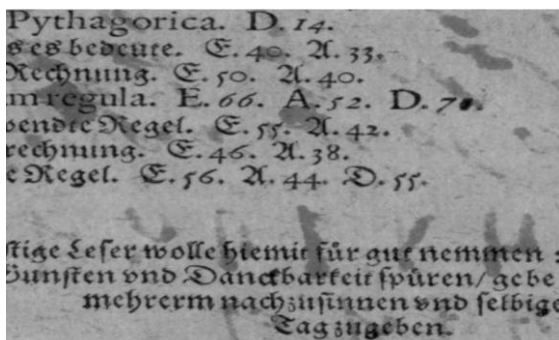 Pythagorica. D. 14.
s es bedeute. E. 40. A. 33.
Rechnung. E. 50. A. 40.
m regula. E. 66. A. 52. D. 70.
bendte Regel. E. 55. A. 42.
rechnung. E. 46. A. 38.
e Regel. E. 56. A. 44. D. 55.
stige Leser wolle hiemit für gut nemmen :
Gunsten vnd Danckbarkeit spüren/ gebe
mehrerm nachzusinnen vnd selbige
Tag zugeben.